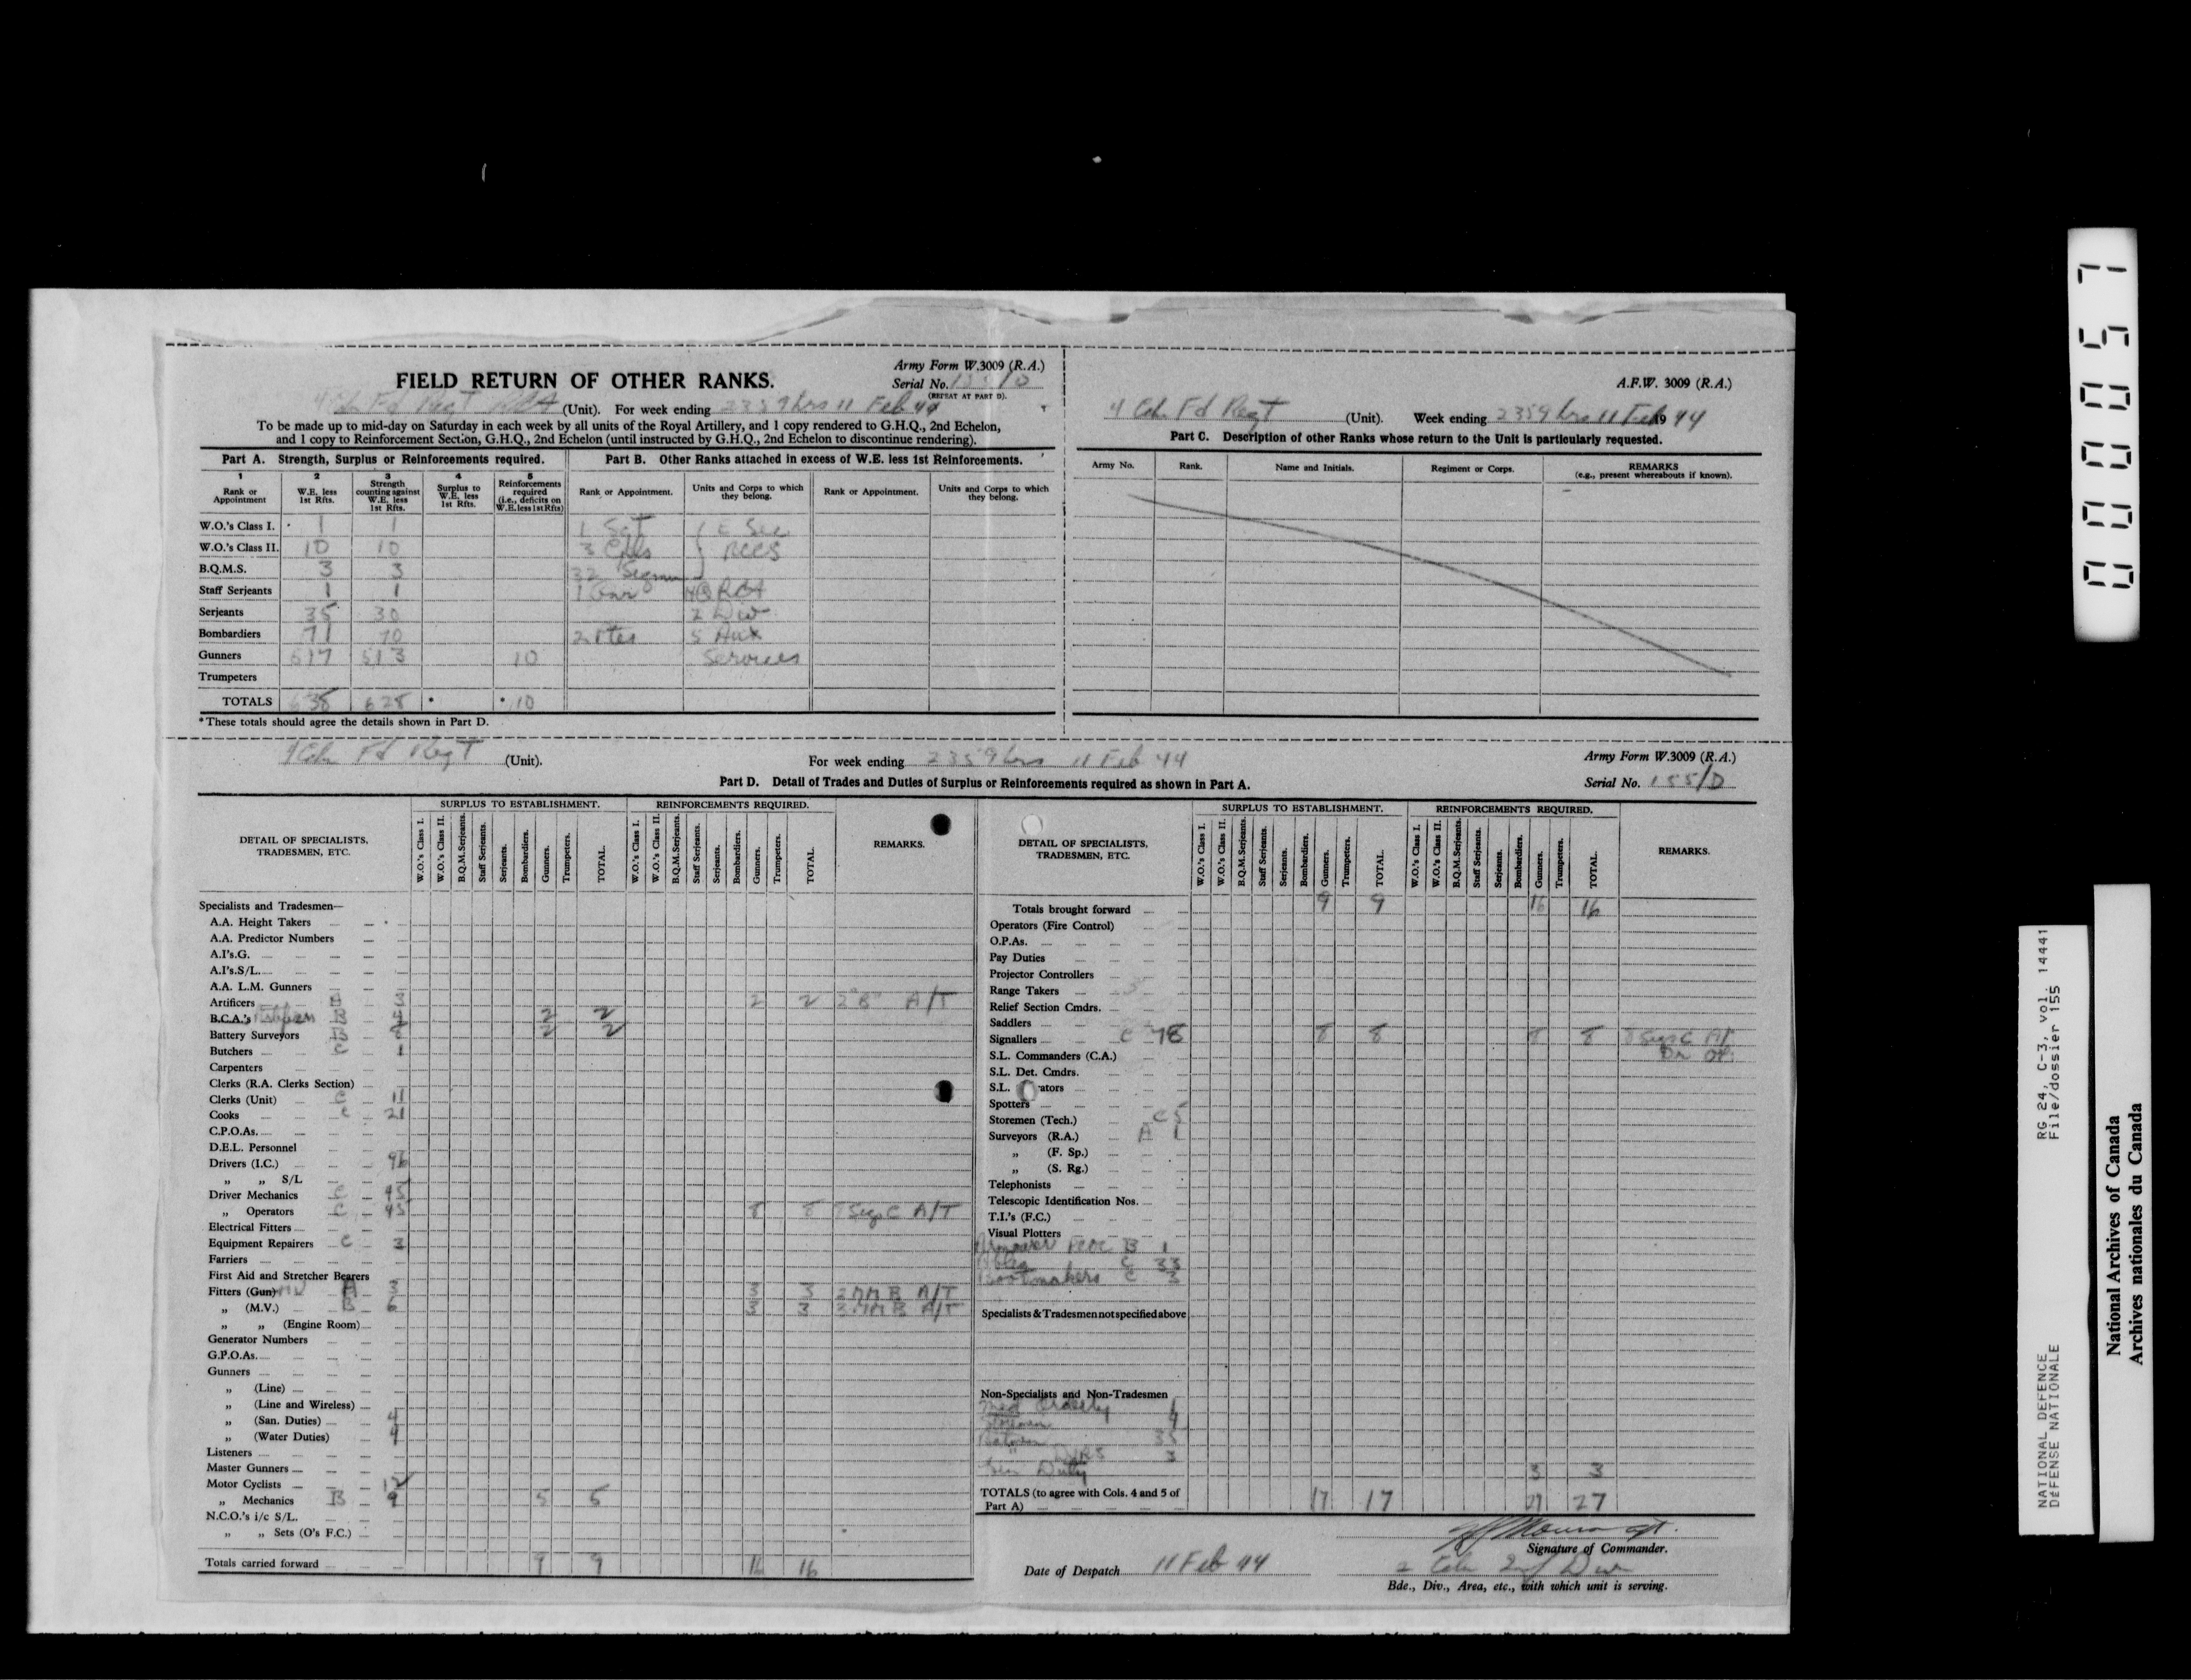 FIELD RETURN OF OTHER RANKS.
Army Form W.3009 (R.A.)
Serial No. 155/D
(REPEAT AT PART D).
4 Cdn Fd Regt RCA (Unit). For week ending 2359 hrs 11 Feb 44
To be made up to mid-day on Saturday in each week by all units of the Royal Artillery, and 1 copy rendered to G.H.Q., 2nd Echelon,
and 1 copy to Reinforcement Section, G.H.Q., 2nd Echelon (until instructed by G.H.Q., 2nd Echelon to discontinue rendering).
Part A. Strength, Surplus or Reinforcements required.
1 Rank or Appointment
2 W.E. less 1st Rfts.
3 Strength counting against W.E. less 1st Rfts.
4 Surplus to W.E. less 1st Rfts.
5 Reinforcements required (i.e., deficits on W.E. less 1st Rfts)
W.O.'s Class I. 1 1
W.O.'s Class II. 10 10
B.Q.M.S. 3 3
Staff Serjeants 1 1
Serjeants 35 30
Bombardiers 71 70
Gunners 517 513 10
Trumpeters
TOTALS 638 628 * * 10
*These totals should agree the details shown in Part D.
Part B. Other Ranks attached in excess of W.E. less 1st Reinforcements.
Rank or Appointment. Units and Corps to which they belong. Rank or Appointment. Units and Corps to which they belong.
1 Sgt E Sec
3 Cpls RCCS
32 Sigmn
1 Gnr HQ RCA
2 Div
2 Ptes 5 Aux
Services
A.F.W. 3009 (R.A.)
4 Cdn Fd Regt (Unit). Week ending 2359 hrs 11 Feb 1944
Part C. Description of other Ranks whose return to the Unit is particularly requested.
Army No. Rank. Name and Initials. Regiment or Corps. REMARKS (e.g., present whereabouts if known).
4 Cdn Fd Regt (Unit). For week ending 2359 hrs 11 Feb 44
Army Form W.3009 (R.A.)
Part D. Detail of Trades and Duties of Surplus or Reinforcements required as shown in Part A.
Serial No. 155/D
DETAIL OF SPECIALISTS, TRADESMEN, ETC.
SURPLUS TO ESTABLISHMENT.
W.O.'s Class I. W.O.'s Class II. B.Q.M.Serjeants. Staff Serjeants. Serjeants. Bombardiers. Gunners. Trumpeters. TOTAL.
REINFORCEMENTS REQUIRED.
W.O.'s Class I. W.O.'s Class II. B.Q.M.Serjeants. Staff Serjeants. Serjeants. Bombardiers. Gunners. Trumpeters. TOTAL.
REMARKS.
Specialists and Tradesmen—
A.A. Height Takers
A.A. Predictor Numbers
A.I's.G.
A.I's.S/L.
A.A. L.M. Gunners
Artificers B 3 2 2 2 "B" A/T
B.C.A.'s B 4 2 2
Battery Surveyors B 8 2 2
Butchers C 1
Carpenters
Clerks (R.A. Clerks Section)
Clerks (Unit) C 11
Cooks C 21
C.P.O.As.
D.E.L. Personnel
Drivers (I.C.) 96
" " S/L
Driver Mechanics C 45
" Operators C 45 8 8 8 Sigs C A/T
Electrical Fitters
Equipment Repairers C 3
Farriers
First Aid and Stretcher Bearers
Fitters (Gun) MV A 3 3 3 2 MM B A/T
" (M.V.) B 6 3 3 3 MM B A/T
" " (Engine Room)
Generator Numbers
G.P.O.As.
Gunners
" (Line)
" (Line and Wireless)
" (San. Duties) 4
" (Water Duties) 4
Listeners
Master Gunners
Motor Cyclists 12
" Mechanics B 9 5 5
N.C.O.'s i/c S/L.
" " Sets (O's F.C.)
Totals carried forward 9 9 16 16
DETAIL OF SPECIALISTS, TRADESMEN, ETC.
SURPLUS TO ESTABLISHMENT.
W.O.'s Class I. W.O.'s Class II. B.Q.M.Serjeants. Staff Serjeants. Serjeants. Bombardiers. Gunners. Trumpeters. TOTAL.
REINFORCEMENTS REQUIRED.
W.O.'s Class I. W.O.'s Class II. B.Q.M.Serjeants. Staff Serjeants. Serjeants. Bombardiers. Gunners. Trumpeters. TOTAL.
REMARKS.
Totals brought forward 9 9 16 16
Operators (Fire Control)
O.P.As.
Pay Duties
Projector Controllers
Range Takers
Relief Section Cmdrs.
Saddlers
Signallers C 78 8 8 8 8 8 Sigs C A/T
Dr Op.
S.L. Commanders (C.A.)
S.L. Det. Cmdrs.
S.L. ators
Spotters
Storemen (Tech.) C 5
Surveyors (R.A.) A 1
" (F. Sp.)
" (S. Rg.)
Telephonists
Telescopic Identification Nos.
T.I.'s (F.C.)
Visual Plotters
B 1
C 33
Bootmakers C 3
Specialists & Tradesmen not specified above
Non-Specialists and Non-Tradesmen
Med Orderly 1
Storemen 4
Batmen 35
3
Gen Duty 3 3
TOTALS (to agree with Cols. 4 and 5 of Part A) 17 17 27 27
Signature of Commander.
Date of Despatch 11 Feb 44
Bde., Div., Area, etc., with which unit is serving.
000057
RG 24, C-3, vol. 14441
File/dossier 155
NATIONAL DEFENCE
DÉFENSE NATIONALE
National Archives of Canada
Archives nationales du Canada